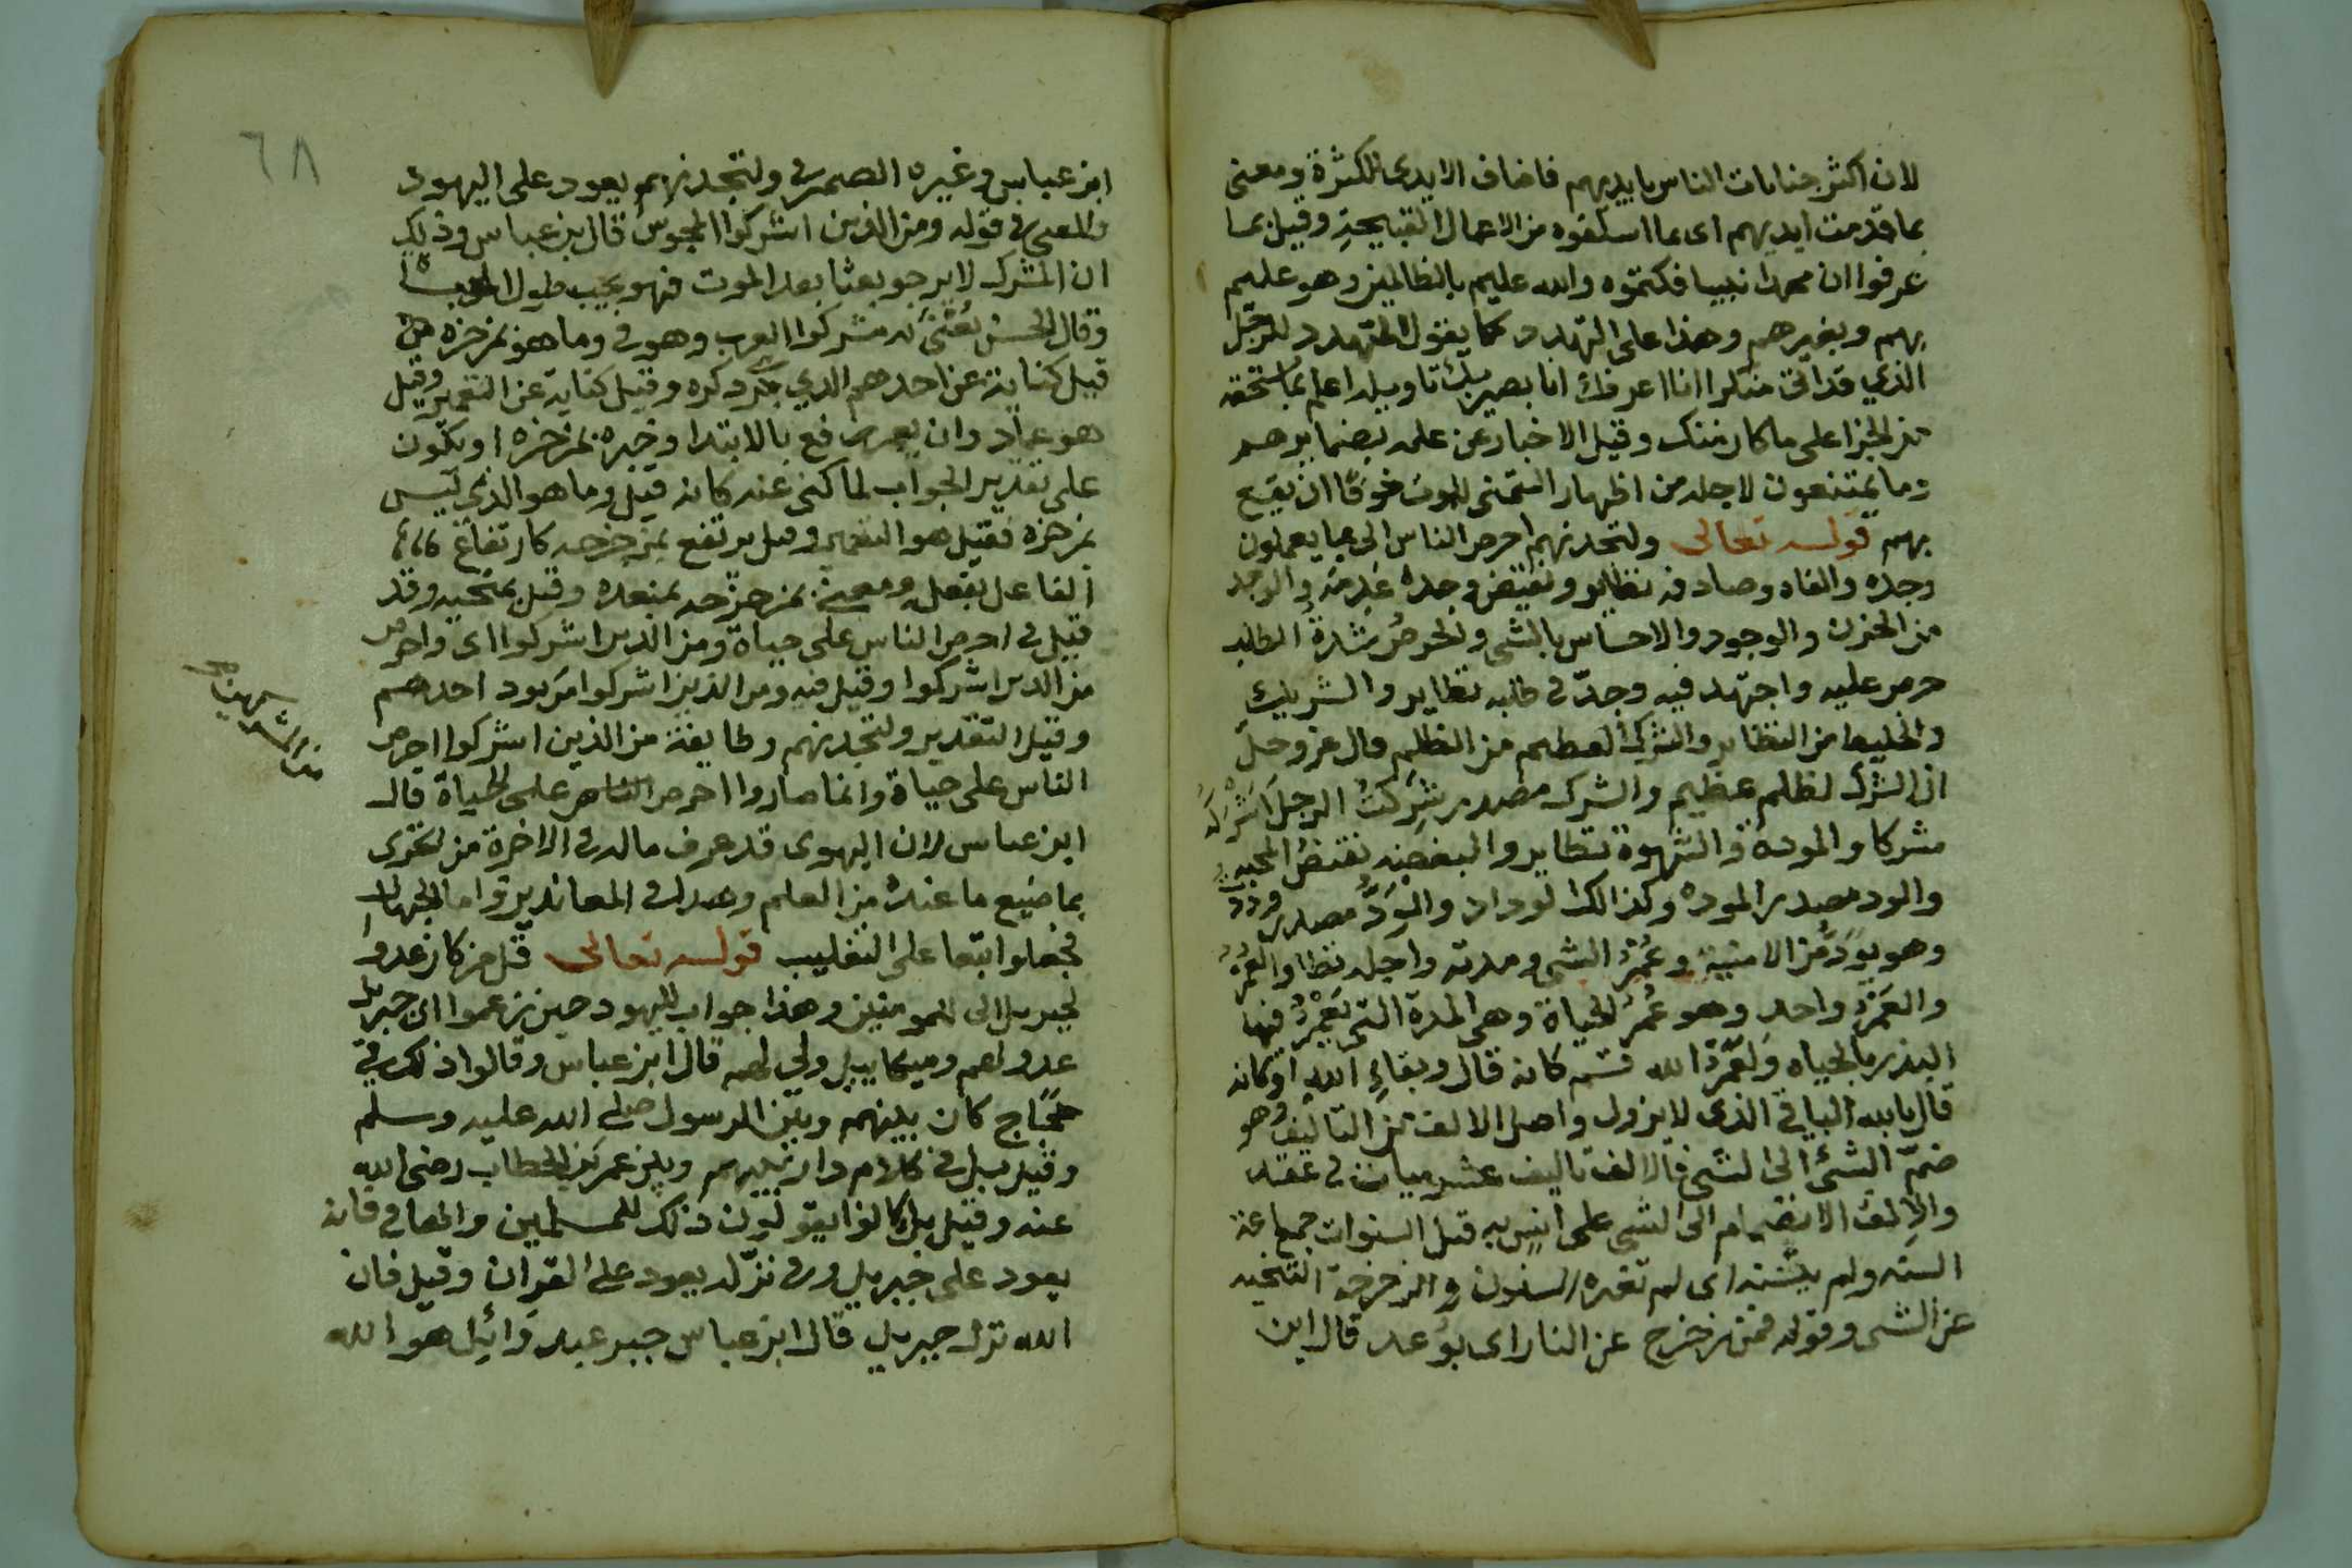 لان اكثر جنايات الناس بايديهم فاضاف الايدى للكثرة ومعنى
بما قدمت ايديهم اى بما اسلفوه من الاعمال القبيحة وقيل بما
عرفوا ان محمدا نبيا فكتموه والله عليم بالظالمين وهو عليم
بهم وبغيرهم وهذا على التهدد كما يقول المتهدد للرجل
الذي قد اتى منكرا انا اعرفك انا بصير بك تاويله اعلم بما تستحقه
من الجزا على ما كان منك وقيل الاخبار عن علمه بضمايرهم
وما يمتنعون لاجله من اظهار التمنى للموت خوفا ان يقع
بهم قوله تعالى ولتجدنهم احرص الناس الى بما يعملون
وجده والفاه وصادفه نظاير ونقيض وجده عدمه والوجد
من الحزن والوجود والاحساس بالشى والحرص شدة الطلب
حرص عليه واجتهد فيه وجدّ فى طلبه نظاير والشريك
والخليط من النظاير والشرك العظيم من الظلم قال عز وجل
ان الشرك لظلم عظيم والشرك مصدر شركت الرجل اشركه
شركا والمودة والشهوة نظاير والبغضه نقيض المحبه
والود مصدر المودة وكذالك الوداد والود مصدر وددت
وهو يود من الامنية وعمر الشى ومدته واجله نظا والعمر
والعمر واحد وهو عمر الحياة وهى المدة التى يعمر فيها
البدن بالحياه ولعمر الله قسم كانه قال وبقاء الله اوكانه
قال بالله الباقى الذى لا يزول واصل الالف من التاليف وهو
ضم الشئ الى الشى فالالف تاليف عشر ميات فى عقد
والالف الانضمام الى الشى على انس به قيل السنوات جمع عنة
السنه ولم يتسنه اى لم تغيره السنون والزحزحة التنحيه
عن الشى وقوله فمن زحزح عن النار اى بوعد قال ابن
٦٨
ابن عباس وغيره الضمير فى ولتجدنهم يعود على اليهود
والمعنى فى قوله ومن الذين اشركوا المجوس قال بن عباس وذلك
ان المشرك لا يرجو بعثا بعد الموت فهو يحب طول
وقال الحسن يعنى به مشركوا العرب وهو فى وما هو بمزحزحه
قيل كناية عن احدهم الذي جرى ذكره وقيل كناية عن التعمير وقيل
هو عماد وان يعمر رفع بالابتدا وخبره بمزحزحه او يكون
على تقدير الجواب لما كنى عنه كانه قيل وما هو الذى ليس
بمزحزحه فقيل هو التعمير وقيل يرتفع بمزحزحه كارتفاع
الفاعل بفعله ومعنى بمزحزحه بمبعده وقيل بمنحيه وقد
قيل فى احرص الناس على حياة ومن الذين اشركوا اى واحرص
من الذين اشركوا وقيل فيه ومن الذين اشركوا من يود احدهم
وقيل التقدير ولتجدنهم وطايفة من الذين اشركوا احرص
الناس على حياة وانما صاروا احرص الناس على الحياة قال
ابن عباس لان اليهودى قد عرف ماله فى الاخرة من الخزى
بما ضيع ما عنده من العلم وهذا فى المعاندين واما الجهال
فجعلوا تبعا على التغليب قوله تعالى قل من كان عدوا
لجبريل الى للمومنين وهذا جواب لليهود حين زعموا ان جبريل
عدو لهم وميكاييل ولى لهم قال ابن عباس وقالوا ذلك فى
حجاج كان بينهم وبين الرسول صلى الله عليه وسلم
وقيل بل فى كلام دار بينهم وبين عمر بن الخطاب رضى الله
عنه وقيل بل كانوا يقولون ذلك للمسلمين والها فى فانه
يعود على جبريل وفى نزله يعود على القران وقيل فان
الله نزل جبريل قال ابن عباس جبر عبد وائيل هو الله